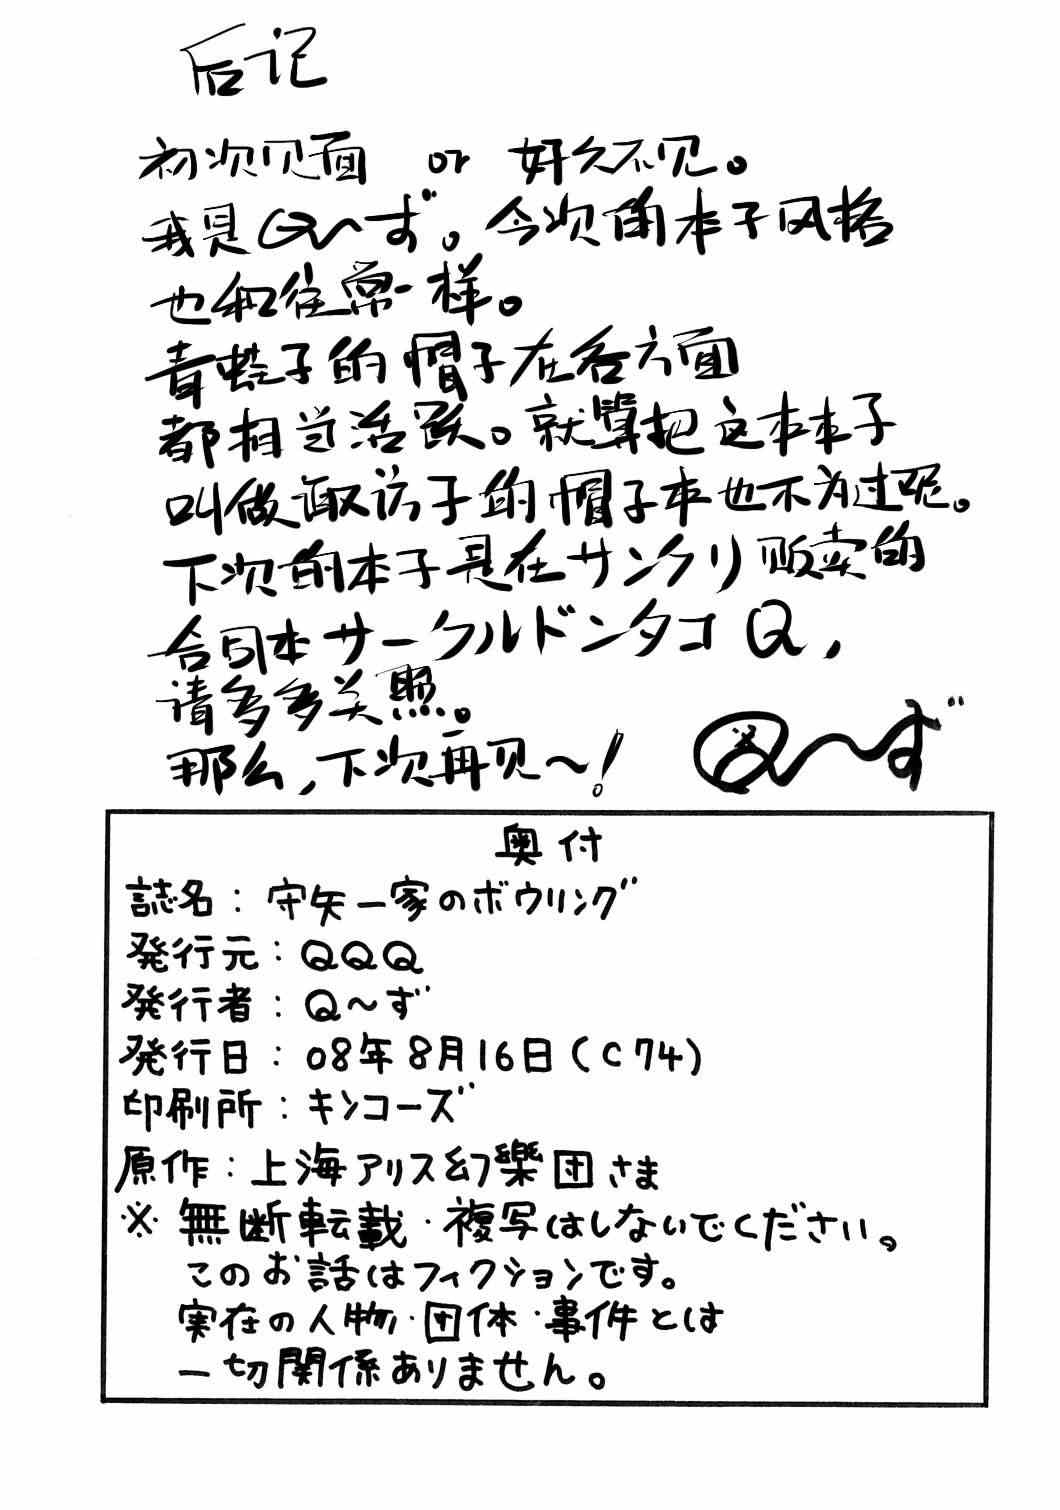 后记
初次见面 or 好久不见。
我是Q〜ず。今次的本子风格
也和往常一样。
青蛙子的帽子在各方面
都相当活跃。就算把这本本子
叫做诹访子的帽子本也不为过呢。
下次的本子是在サンクリ贩卖的
合同本サークルドンタコQ,
请多多关照。
那么,下次再见〜!
Q〜ず
奥付
誌名:守矢一家のボウリング
発行元:QQQ
発行者:Q〜ず
発行日:08年8月16日(C74)
印刷所:キンコーズ
原作:上海アリス幻樂団さま
※ 無断転載・複写はしないでください。
このお話はフィクションです。
実在の人物・団体・事件とは
一切関係ありません。